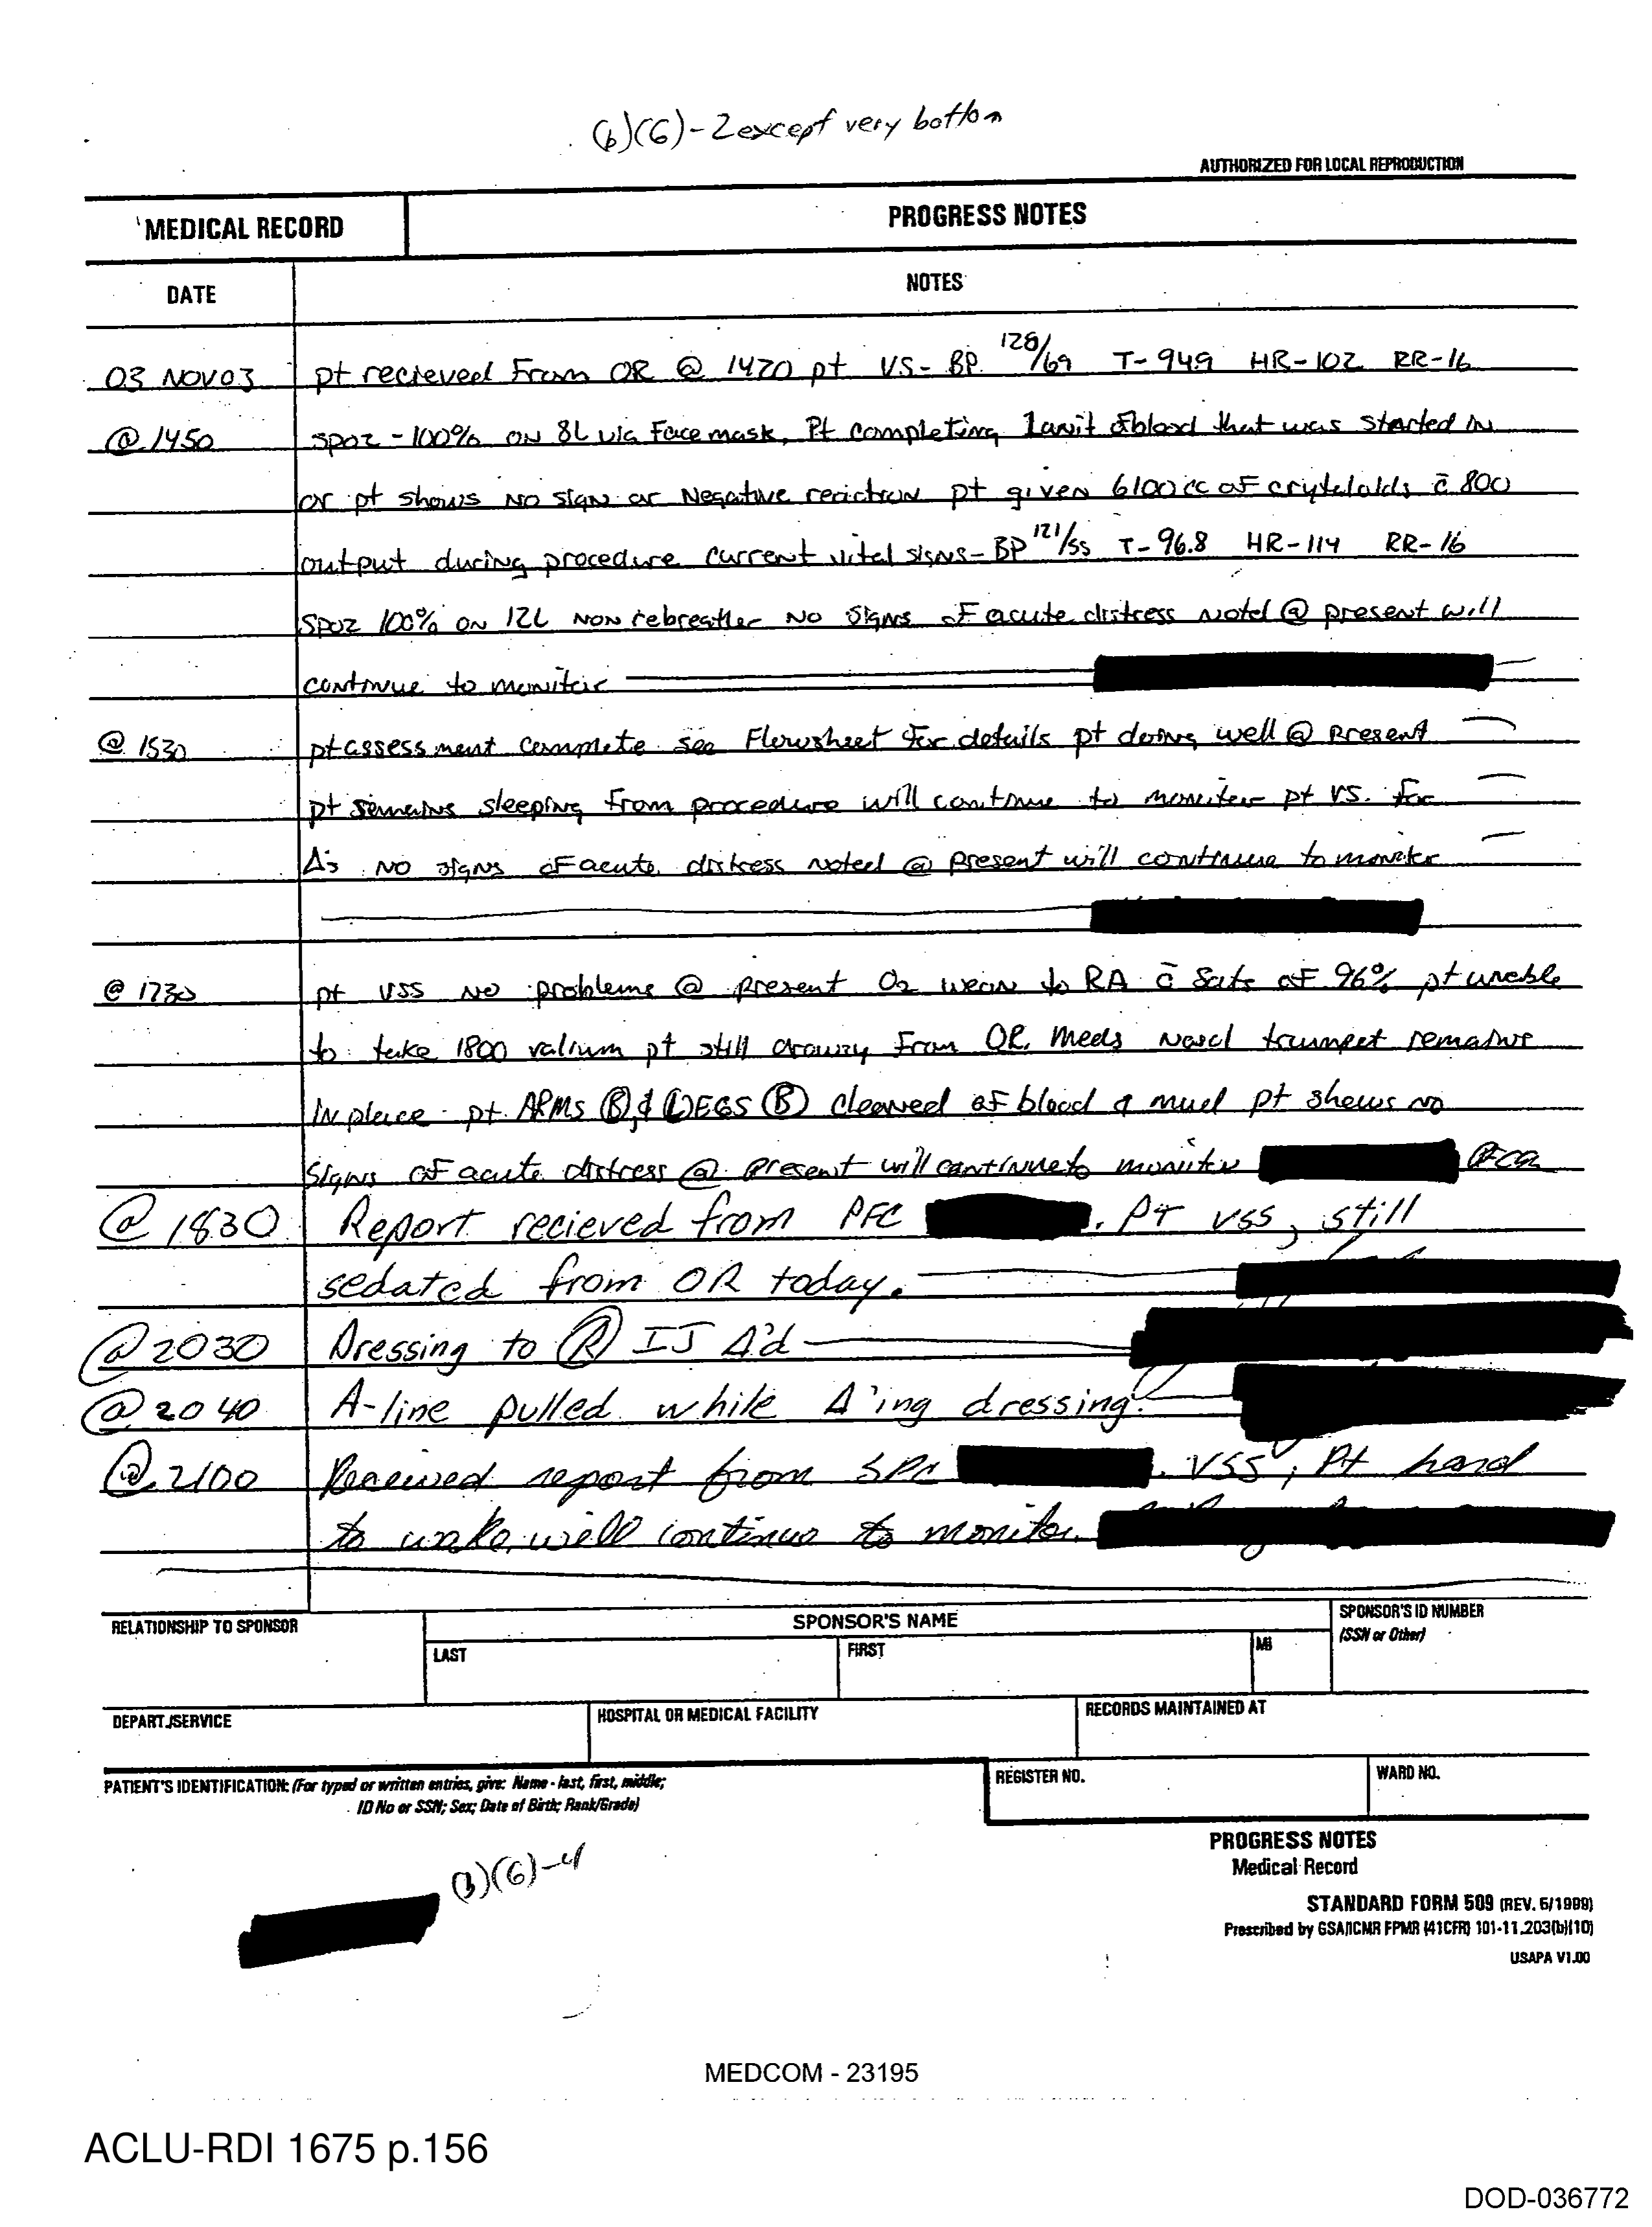 (b)(6)-2 except very bottom
AUTHORIZED FOR LOCAL REPRODUCTION
MEDICAL RECORD
PROGRESS NOTES
DATE
NOTES
03 NOV 03 pt recieved From OR @ 1420 pt VS- BP 128/69 T-94.9 HR-102 RR-16
@ 1450 SPO2 -100% ON 8L via Face mask, Pt completing 1 unit of blood that was started in
or pt shows NO sign or Negative reaction pt given 6100cc of c̄ 800
output during procedure current vital signs- BP 121/55 T-96.8 HR-114 RR-16
SPO2 100% ON 12L NON rebreather NO signs of acute distress noted @ present will
continue to monitor
@ 1530 pt assessment complete see Flowsheet for details pt doing well @ present
pt remains sleeping from procedure will continue to monitor pt VS. for
Δ's NO signs of acute distress noted @ present will continue to monitor
@ 1730 pt VSS NO problems @ present O2 wean to RA c̄ Sats of 96% pt unable
to take 1800 valium pt still drowzy From OR. Meds nasal trumpet remains
in place pt ARMS (B) & LEGS (B) cleaned of blood & mud pt shows no
signs of acute distress @ present will continue to monitor
@ 1830 Report recieved from PFC . Pt VSS, still
sedated from OR today.
@ 2030 Dressing to (R) IJ Δ'd
@ 2040 A-line pulled while Δ'ing dressing.
@ 2100 Received report from SPC . VSS; Pt hard
to wake, will continue to monitor.
RELATIONSHIP TO SPONSOR
SPONSOR'S NAME
SPONSOR'S ID NUMBER
(SSN or Other)
LAST
FIRST
MI
DEPART./SERVICE
HOSPITAL OR MEDICAL FACILITY
RECORDS MAINTAINED AT
PATIENT'S IDENTIFICATION: (For typed or written entries, give: Name - last, first, middle;
ID No or SSN; Sex; Date of Birth; Rank/Grade)
REGISTER NO.
WARD NO.
(b)(6)-4
PROGRESS NOTES
Medical Record
STANDARD FORM 509 (REV. 5/1999)
Prescribed by GSA/ICMR FPMR (41CFR) 101-11.203(b)(10)
USAPA V1.00
MEDCOM - 23195
ACLU-RDI 1675 p.156
DOD-036772